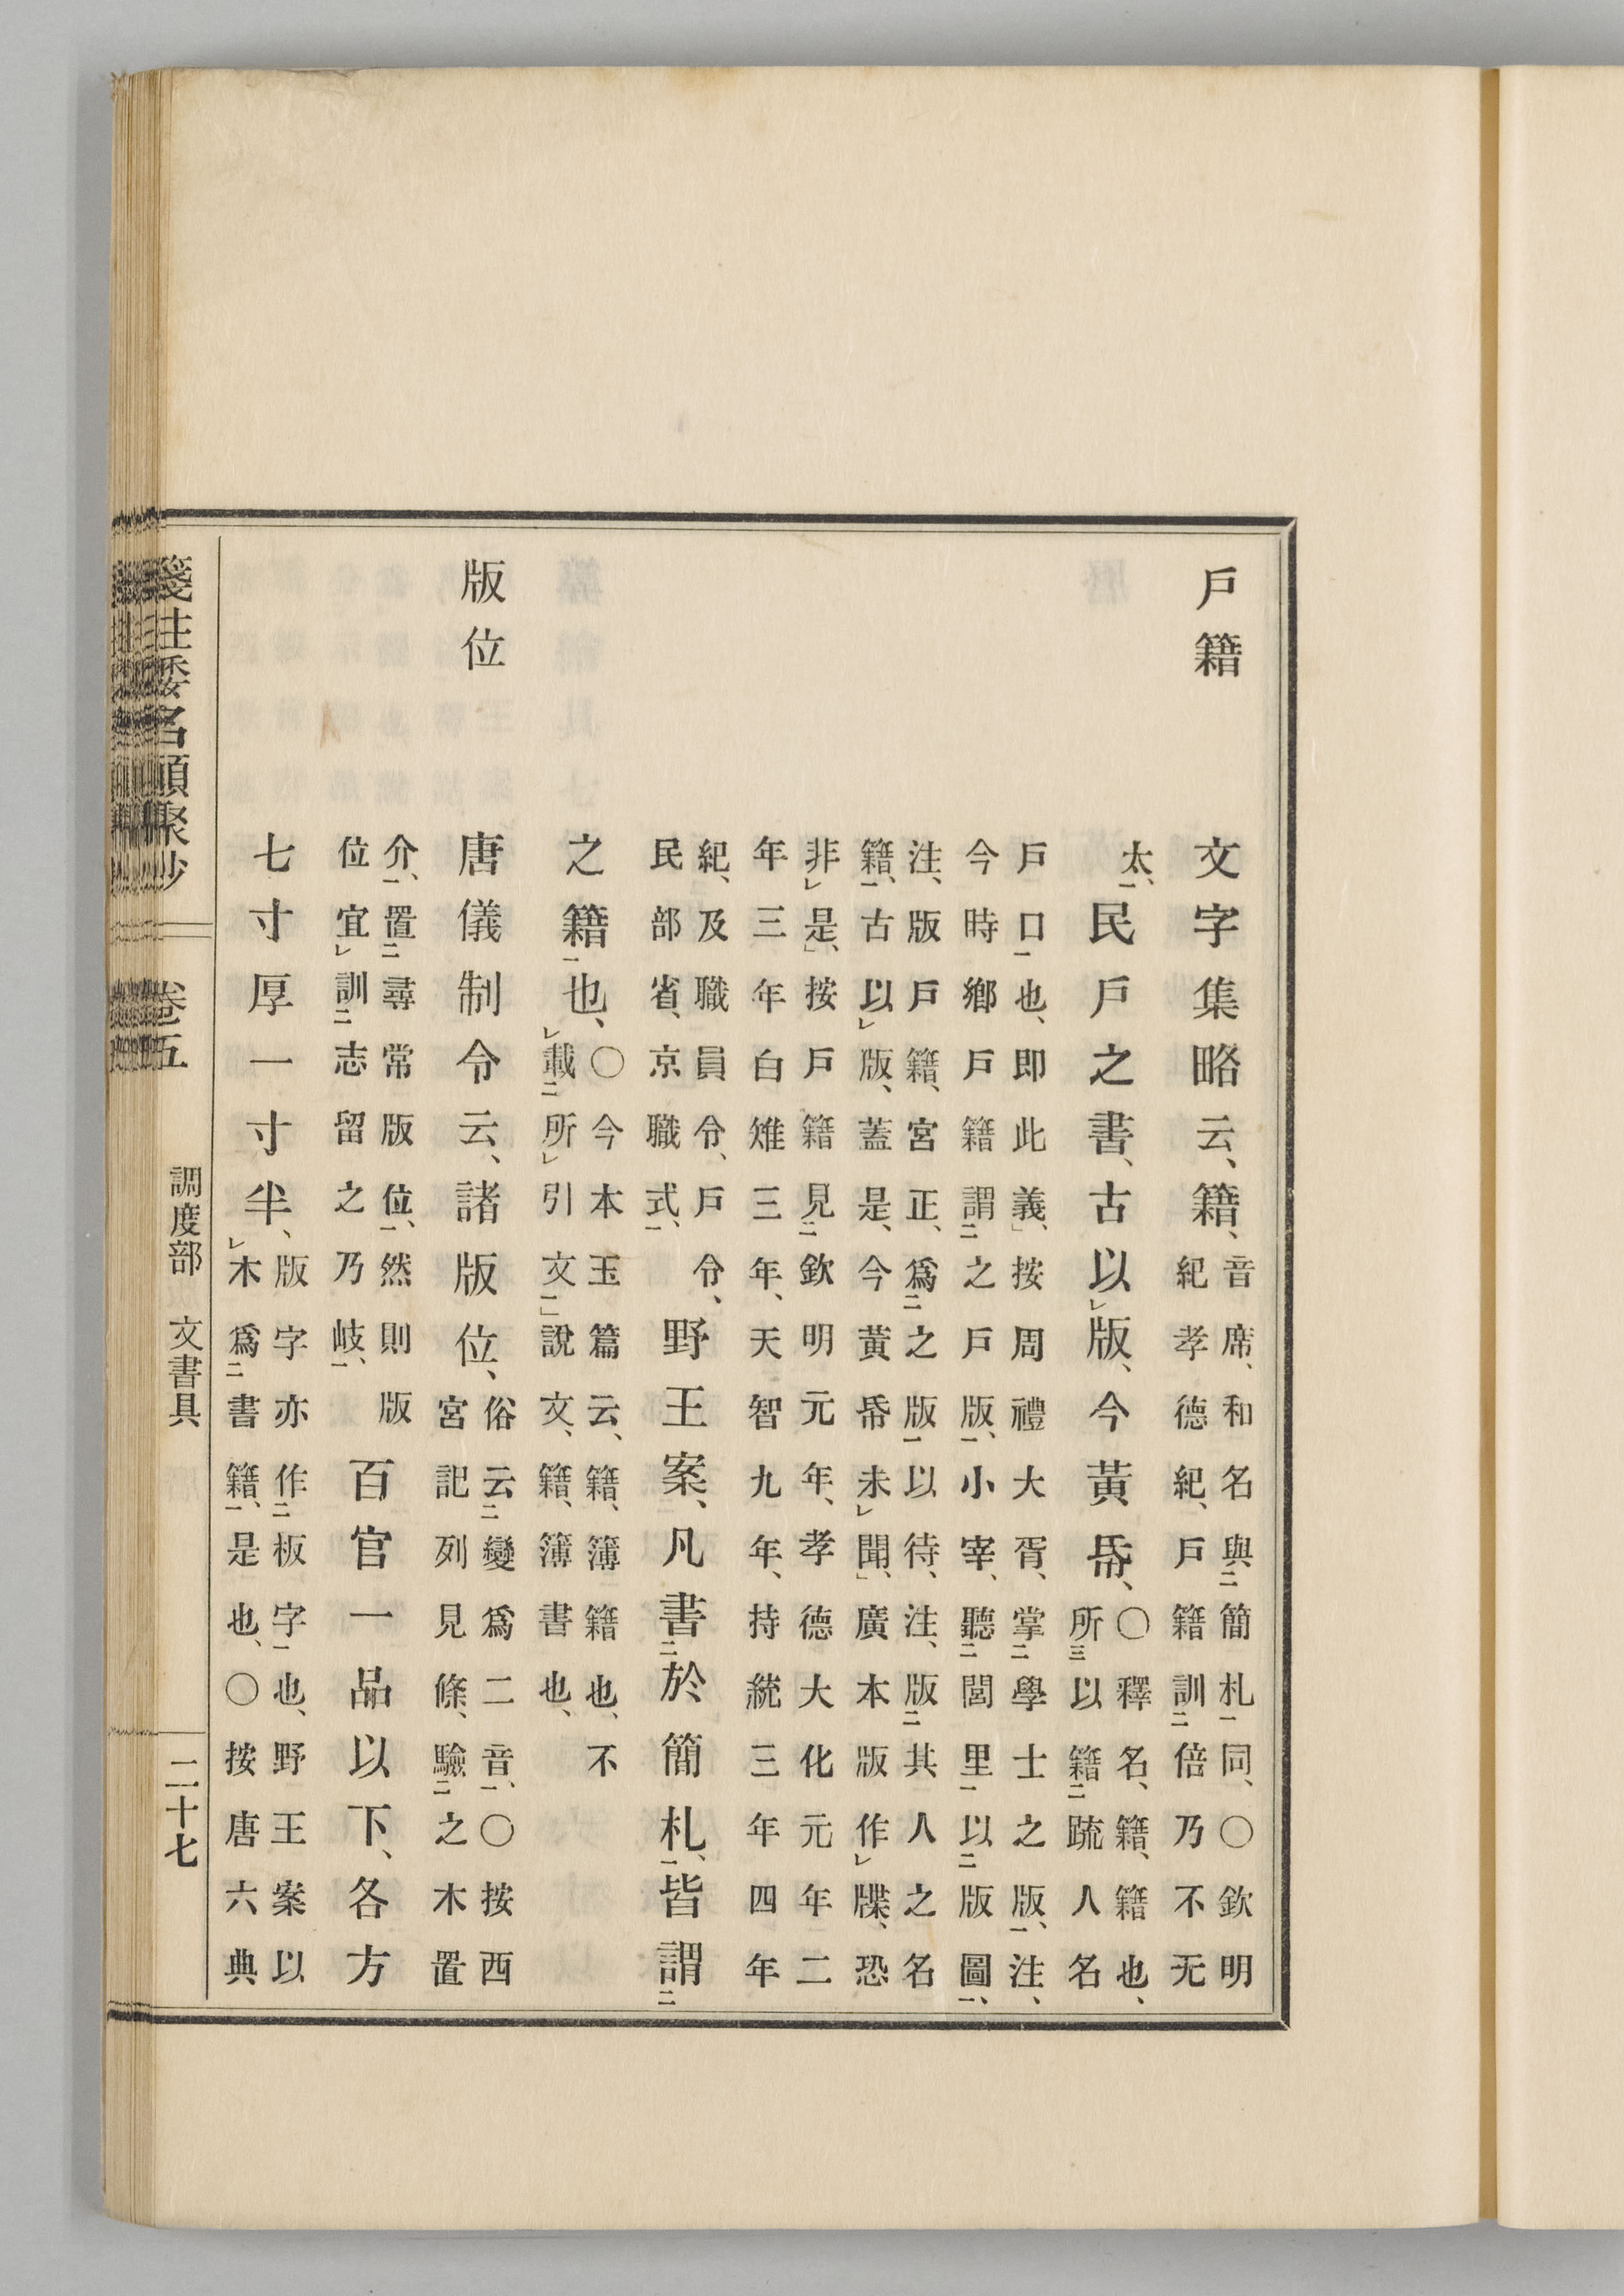 戶籍
文字集略云、籍、
音席、和名與簡札同、〇欽明
紀孝德紀、戶籍訓倍乃不无
太、
民戶之書、古以版、今黃帋、
〇釋名、籍、籍也、
所以籍疏人名
戶口也、即此義、按周禮大胥、掌學士之版、注、
今時鄕戶籍謂之戶版、小宰、聽閭里以版圖、
注、版戶籍、宮正、爲之版以待、注、版其人之名
籍、古以版、蓋是、今黃帋未聞、廣本版作牒、恐
非是、按戶籍見欽明元年、孝德大化元年二
年三年白雉三年、天智九年、持統三年四年
紀、及職員令、戶令、
民部省、京職式、
野王案、凡書於簡札、皆謂
之籍也、
〇今本玉篇云、籍、簿籍也、不
載所引文說文、籍、簿書也、
版位
唐儀制令云、諸版位、
俗云變爲二音、〇按西
宮記列見條、驗之木置
介、置尋常版位、然則版
位宜訓志留之乃岐、
百官一品以下、各方
七寸厚一寸半、
版字亦作板字也、野王案以
木爲書籍、是也、〇按唐六典
箋注倭名類聚抄 卷五 調度部 文書具 二十七